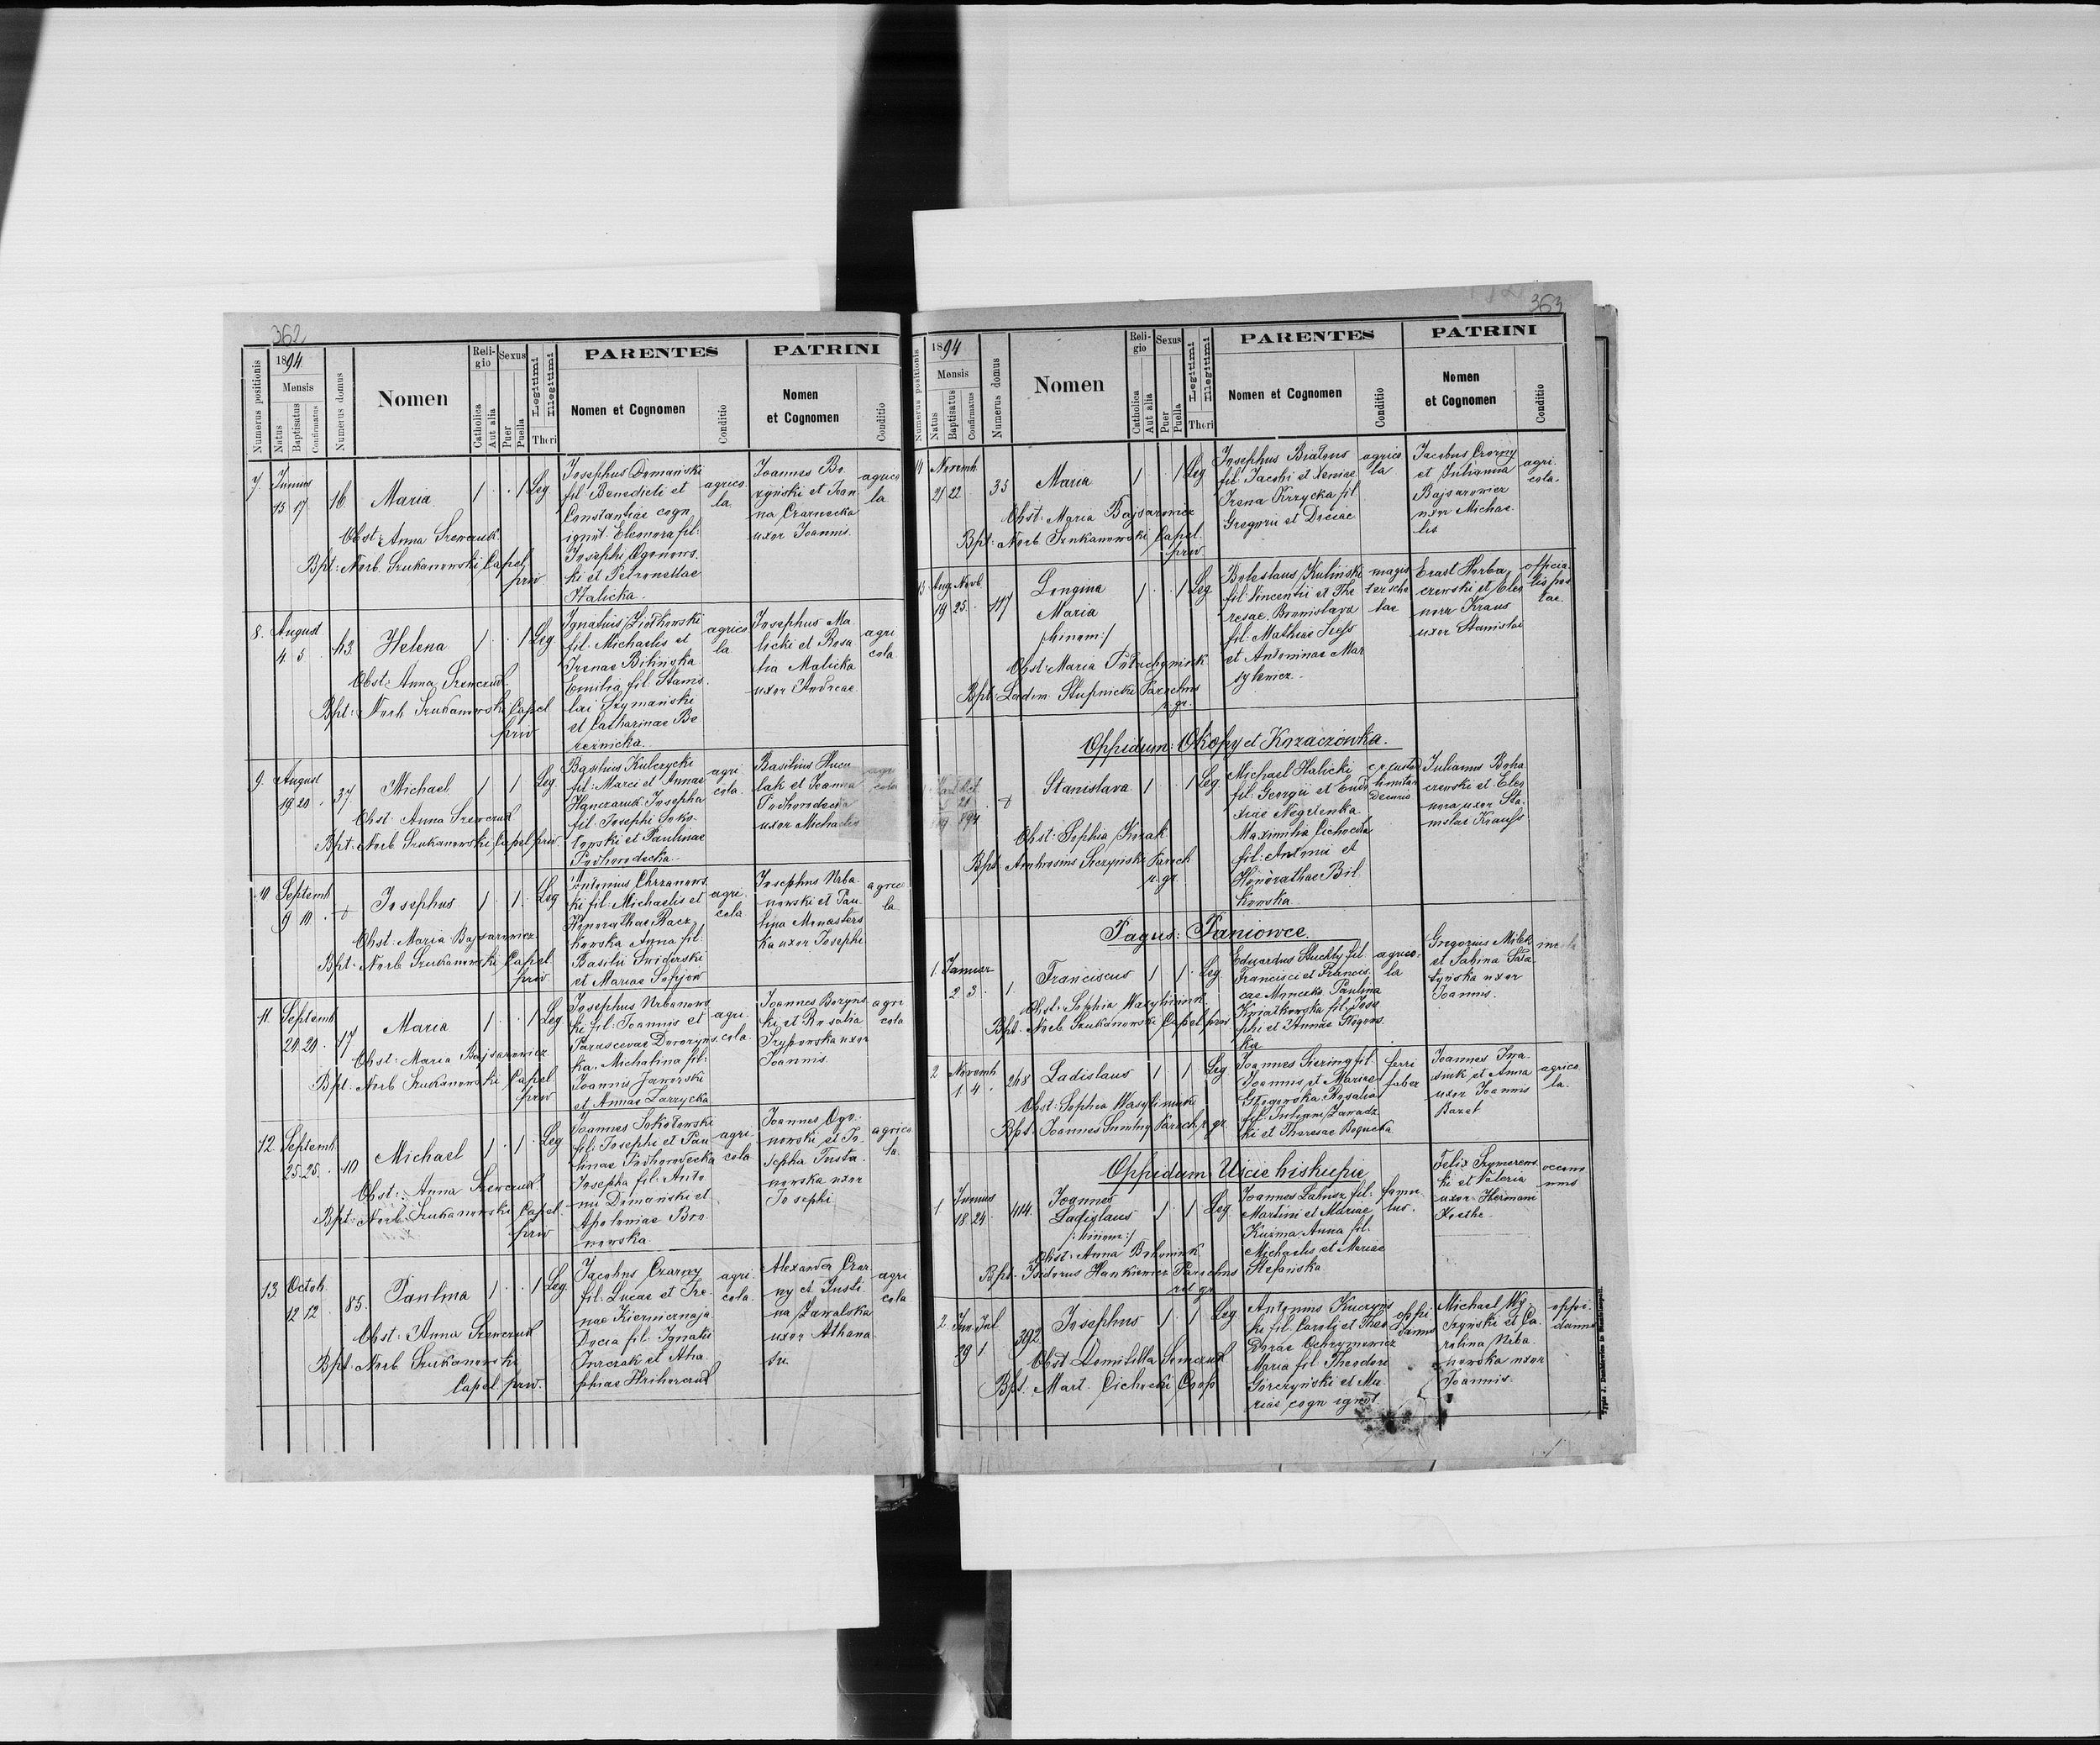 362
Numerus positionis
1894
Mensis
Natus
Baptisatus
Confirmatus
Numerus domus
Nomen
Religio
Catholica
Aut alia
Sexus
Puer
Puella
Legitimi
Illegitimi
Thori
PARENTES
Nomen et Cognomen
Conditio
PATRINI
Nomen
et Cognomen
Conditio
7. Junius
15 17 16. Maria 1 1 Leg
Obst: Anna Szewczuk
Bpt: Norb. Szukanowski Capel
priv
Josephus Domański
fil Benedicti et
Constantiae cogn
ignot. Eleonora fil:
Josephi Ogonows
ki et Petronellae
Halicka.
agrico
la.
Joannes Bo
zyński et Joan
na Czarnecka
uxor Joannis.
agrico
la
8. August
4 5 43. Helena 1 1 Leg
Obst: Anna Szewczuk
Bpt: Norb Szukanowski Capel
priv
Ignatius Ziołkowski
fil. Michaelis et
Irenae Bilińska
Emilia fil. Stanis
lai Szymański
et Catharinae Be
reznicka.
agrico
la
Josephus Ma
licki et Rosa
lia Malicka
uxor Andreae.
agri
cola
9. August
19 20 37. Michael 1 1 Leg
Obst: Anna Szewczuk
Bpt: Norb. Szukanowski Capel priv.
Basilius Kulczycki
fil: Marci et Annae
Hanczaruk Josepha
fil. Josephi Soko
łowski et Paulinae
Podhorodecka.
agri
cola.
Basilius Hucu
lak et Joanna
Podhorodecka
uxor Michaelis
agri
cola
10 Septemb
9 10 Josephus 1 1 Leg
Obst: Maria Bajsarowicz
Bpt: Norb Szukanowski Capel
priv.
Antonius Chrzanows
ki fil: Michaelis et
Honorathae Racz
kowska Anna fil:
Basilii Swiderski
et Mariae Sofijow
agri
cola
Josephus Urba
nowski et Pau
lina Monasters
ka uxor Josephi
agrico
la
11. Septemb
17 Maria 1 1 Leg
Obst: Maria Bajsarowicz
Bpt: Norb Szukanowski Capel
priv
Josephus Urbanows
ki fil: Joannis et
Parascevae Dworzyns
ka. Michalina fil:
Joannis Jaworski
et Annae Zarzycka
agri
cola.
Joannes Bozyns
ki et Rosalia
uxor
Joannis.
agri
cola
12. Septemb
25. 25. 10 Michael 1 1 Leg
Obst: Anna Szewczuk
Bpt: Norb Szukanowski Capel.
priv
Joannes Sokołowski
fil: Josephi et Pau
linae Podhorodecka
Josepha fil: Anto
nii Domański et
Apoloniae Bro
nowska.
agri
cola
Joannes Ogo
nowski et Jo
sepha Justa
nowska uxor
Josephi
agrico
la.
13. Octob
12 12 85. Paulina 1 1 Leg
Obst: Anna Szewczuk
Bpt: Norb Szukanowski
Capel. priv.
Jacobus Czarny
fil. Lucae et Ire
nae Kierniernaja
Docia fil. Ignatii
Jurczak et Aha
phiae Hrihorczuk
agri
cola.
Alexander Czar
ny et Justi
na Zawalska
uxor Athana
sii.
agri
cola
363
Numerus positionis
1894
Mensis
Natus
Baptisatus
Confirmatus
Numerus domus
Nomen
Religio
Catholica
Aut alia
Sexus
Puer
Puella
Legitimi
Illegitimi
Thori
PARENTES
Nomen et Cognomen
Conditio
PATRINI
Nomen
et Cognomen
Conditio
14 Novemb
21 22 35 Maria 1 1 Leg
Obst: Maria Bajsarowicz
Bpt: Norb Szukanowski Capel.
priv
Josephus Bratous
fil: Jacobi et Xeniae
Irena Krzycka fil
Gregorii et Dociae
agrico
la
Jacobus Czorny
et Julianna
Bajsarowicz
uxor Michae
lis
agri
cola.
15 Aug Novb
19 25. 117 Longina
Maria
/:binom:/
1 1 Leg
Obst: Maria
Bpt: Ladim Stupnicki Parochus
r. gr.
Boleslaus Kuliński
fil: Vincentii et The
resae. Bronislava
fil: Mathiae Liess
et Antoninae Mar
sylewicz.
magis
ter scho
lae
Erast Horba
czewski et Eleo
nora Kraus
uxor Stanislai
officia
lis pos
tae.
Oppidum: Okopy et Kozaczówka.
Stanislava 1 1 Leg.
Obst: Sophia Kozak
Bpt Ambrosius Paroch
r. gr.
Michael Halicki
fil: Georgii et Eudo
xiae Negrienka
Maximilia Cichocka
fil: Antonii et
Honorathae Bil
kowska.
Julianus Boha
czewski et Eleo
nora uxor Sta
nislai Krauss
Pagus: Paniowce.
1. Januar
2 3. 1 Franciscus 1 1 Leg
Obst: Sophia Wasyliniuk
Bpt: Norb Szukanowski Capel priv
Eduardus Stuchły fil
Francisci et Francis
cae. Paulina
Kwiatkowska fil. Jose
phi et Annae Głogows
ka
agrico
la
Gregorius Milek
et Sabina Sala
tyńska uxor
Joannis.
2 Novemb
1 4. 268 Ladislaus 1 1 Leg
Obst: Sophia Wasyliniuk
Bpt: Joannes Paroch r. gr.
Joannes Siering fil
Joannis et Mariae
Głogowska Rosalia
fil. Juliani Zawadz
ki et Theresae Bogucka
ferri
faber
Joannes Iwa
siuk et Anna
uxor Joannis
Bazat
agrico
la.
Oppidum: Uście biskupie
1. Junius
18. 24. 414. Joannes
Ladislaus
/:binom:/
1 1 Leg
Obst: Anna
Bpt: Isidorus Hankiewicz Parochus
rit gr
Joannes fil:
Martini et Mariae
Kuzma. Anna fil.
Michaelis et Mariae
Stefańska
famu
lus.
Felix Szymerows
ki et Valeria
uxor Hermani
Koethe.
oecono
mus
2. Jun Jul
29 1 392 Josephus 1 1 Leg
Obst Domitilla Semczuk
Bpt. Mart. Cichocki Coop
Antonius Kuczyńs
ki fil. Caroli et Theo
dorae Ochrymowicz
Maria fil. Theodori
Gorczyński et Ma
riae cogn ignot
oppi
danus
Michael Wy
szyński et Ca
rolina Urba
nowska uxor
Joannis.
oppi
danus
Typis J. Dankiewicz in Stanislaopoli.